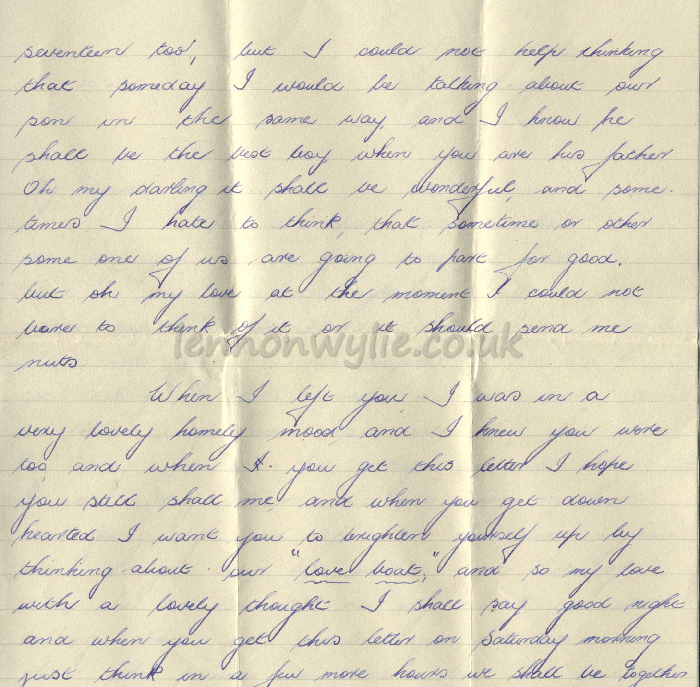 seventeen too, but I could not help thinking
that someday I would be talking about our
son in the same way, and I know he
shall be the best boy when you are his father
Oh my darling it shall be wonderful, and some.
times I hate to think, that sometime or other
some one of us, are going to part for good.
but oh my love at the moment I could not
bare to think of it or it should send me
nuts.
lennonwylie.co.uk
When I left you, I was in a
very lovely homely mood, and I knew you were
too, and when I. you get this letter I hope
you still shall me, and when you get down
hearted I want you to brighten yourself up by
thinking about our "love boat," and so my love
with a lovely thought I shall say good night
and when you get this letter on Saturday morning
just think in a few more hours we shall be together